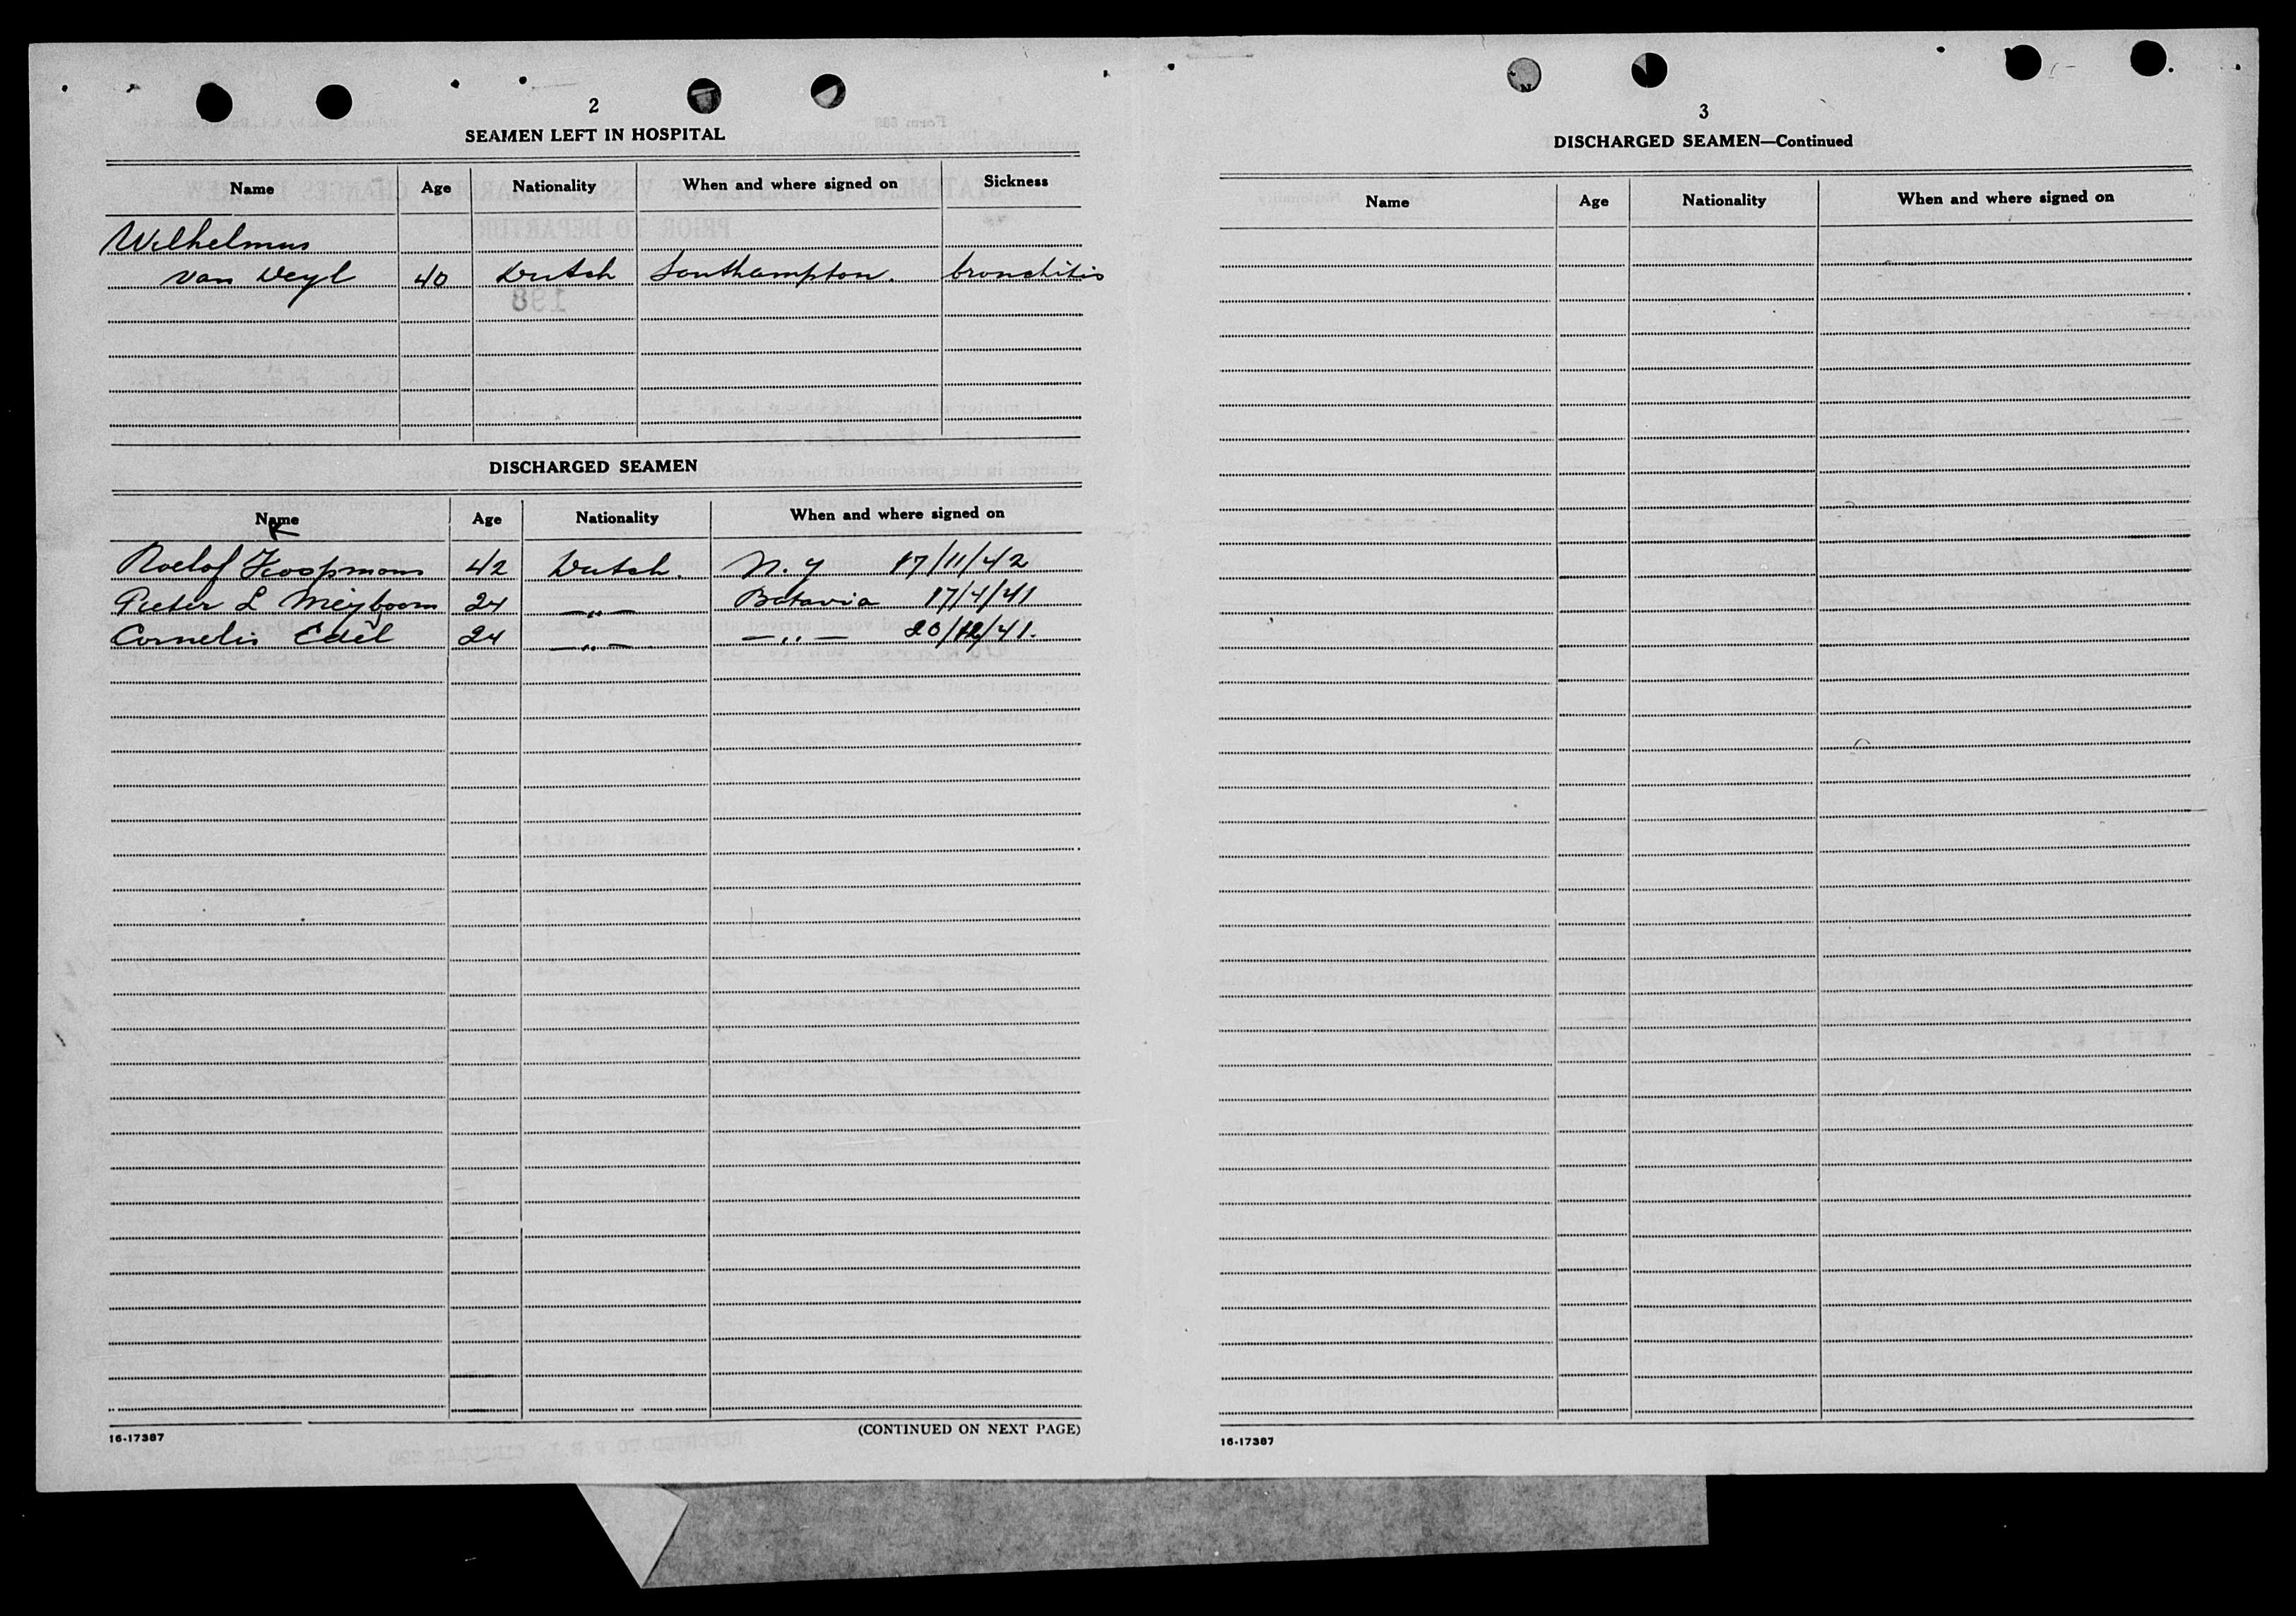 2
SEAMEN LEFT IN HOSPITAL
Name Age Nationality When and where signed on Sickness
Wilhelmus
van Weyl 40 Dutch Southampton. bronchitis
DISCHARGED SEAMEN
Name Age Nationality When and where signed on
K
Roelof Koopmans 42 Dutch. N.Y 17/11/42
Pieter L Meyboom 24 —"— Batavia 17/4/41
Cornelis Edel 24 —"— —"— 20/12/41.
16-17387
(CONTINUED ON NEXT PAGE)
3
DISCHARGED SEAMEN—Continued
Name Age Nationality When and where signed on
16-17387